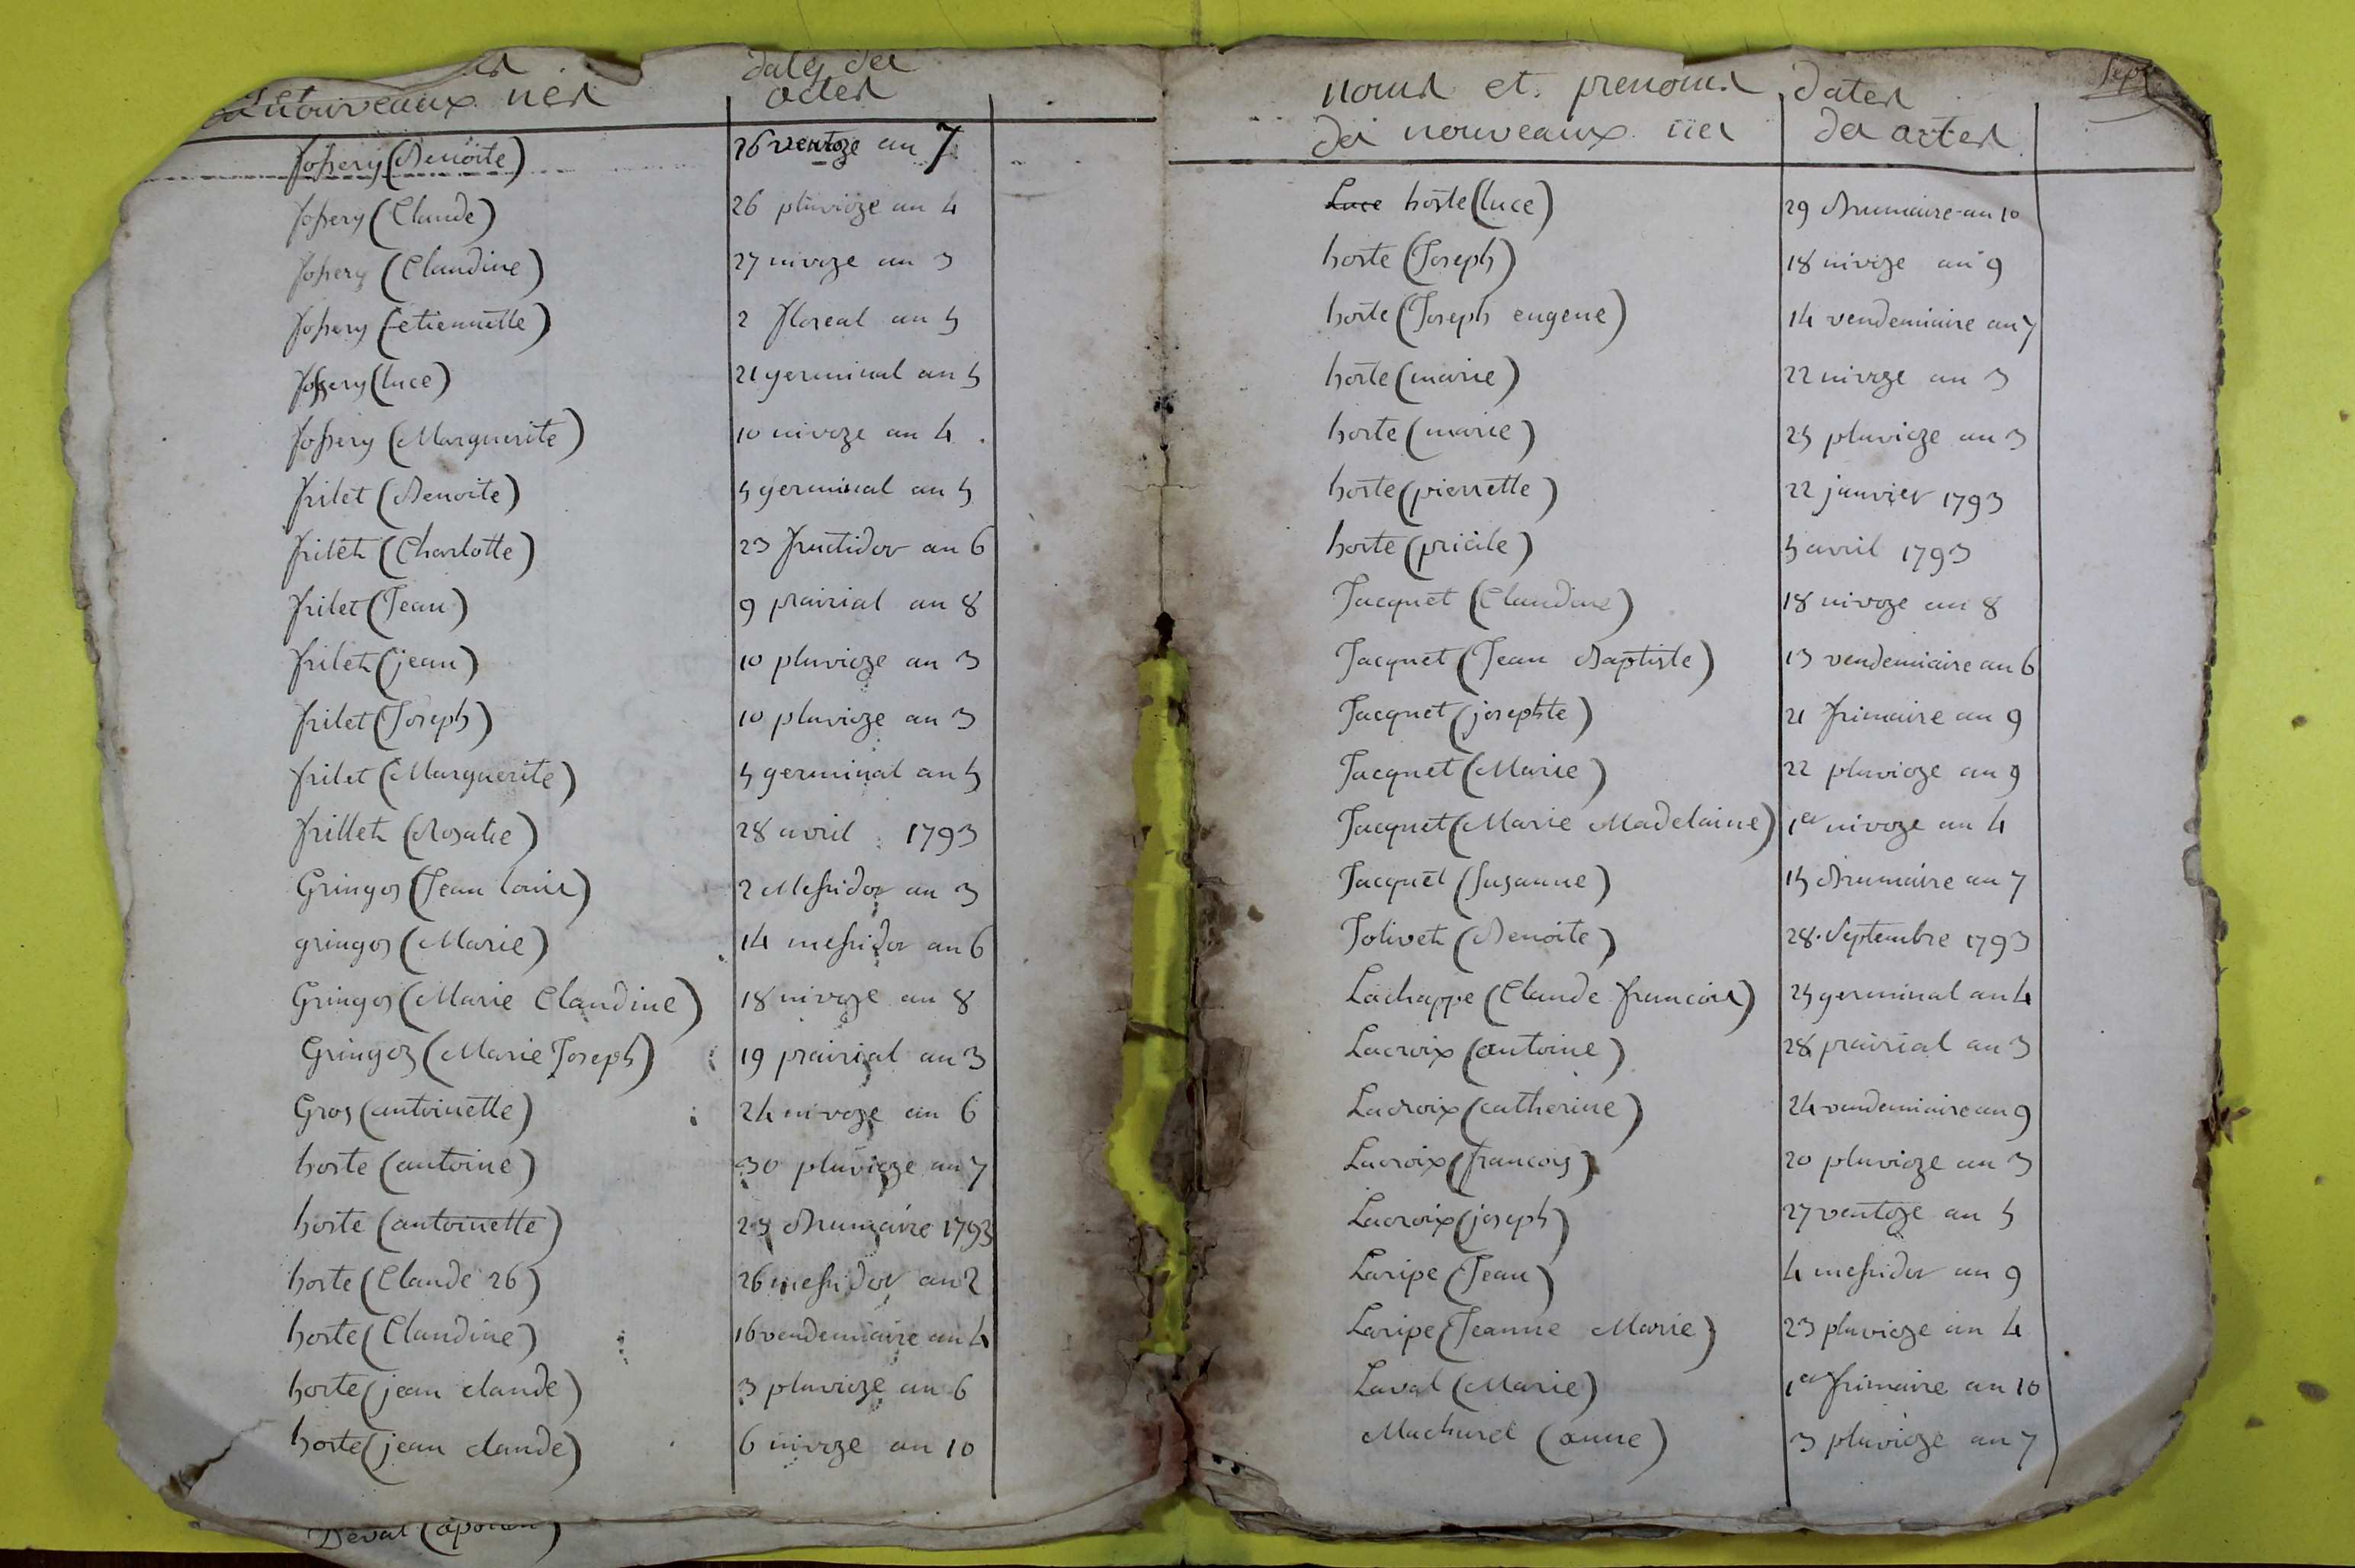 dates des
nouveaux nés actes
fossery (Benoite) 26 ventoze an 7
fossery (Claude) 26 pluvioze an 4
fossery (Claudine) 27 nivoze an 3
fossery (etiennette) 2 floreal an 5
fossery (luce) 21 germinal an 5
fossery (Marguerite) 10 nivoze an 4
frilet (Benoite) 5 germinal an 5
frilet (Charlotte) 23 fructidor an 6
frilet (Jean) 9 prairial an 8
frilet (jean) 10 pluvioze an 3
frilet (Joseph) 10 pluvioze an 3
frilet (Marguerite) 5 germinal an 5
frillet (Rosalie) 28 avril 1793
Gringoz (Jean louis) 2 Messidor an 3
gringoz (Marie) 14 messidor an 6
Gringoz (Marie Claudine) 18 nivoze an 8
Gringoz (Marie Joseph) 19 prairial an 3
Gros (antoinette) 24 nivoze an 6
hoste (antoine) 30 pluvioze an 7
hoste (antoinette) 25 Brumaire 1793
hoste (Claude 26) 26 messidor an 2
hoste (Claudine) 16 vendemiaire an 4
hoste (jean claude) 3 pluvioze an 6
hoste (jean claude) 6 nivoze an 10
Deval
noms et prenoms dates
des nouveaux nés des actes
Luce hoste (luce) 29 Brumaire an 10
hoste (Joseph) 18 nivoze an 9
hoste (Joseph eugene) 14 vendemiaire an 7
hoste (marie) 22 nivoze an 3
hoste (marie) 25 pluvioze an 3
hoste (pierrette) 22 janvier 1793
hoste (pricile) 5 avril 1793
Jacquet (Claudine) 18 nivoze an 8
Jacquet (Jean Baptiste) 13 vendemiaire an 6
Jacquet (josephte) 21 frimaire an 9
Jacquet (Marie) 22 pluvioze an 9
Jacquet (Marie Madelaine) 1er nivoze an 4
Jacquet (Suzanne) 15 Brumaire an 7
Jolivet (Benoite) 28 Septembre 1793
Lachappe (Claude francois) 25 germinal an 4
Lacroix (antoine) 28 prairial an 3
Lacroix (catherine) 24 vendemiaire an 9
Lacroix (francois) 20 pluvioze an 3
Lacroix (joseph) 27 ventoze an 5
Laripe (Jean) 4 messidor an 9
Laripe (Jeanne Marie) 23 pluvioze an 4
Laval (Marie) 1er frimaire an 10
Machurel (anne) 3 pluvioze an 7